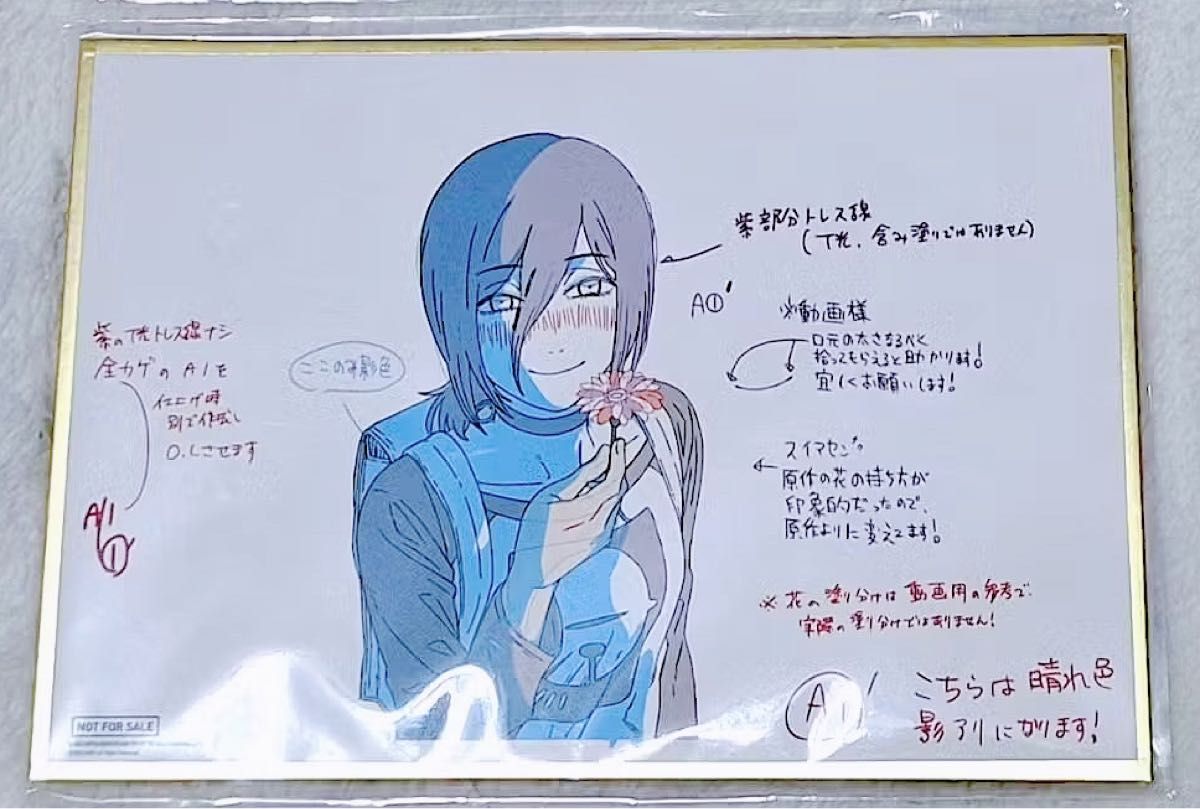 紫部分トレス線
(T光、含み塗りではありません)
A①'
※動画様
口元の太さなるべく
拾ってもらえると助かります!
宜しくお願いします!
紫のT光トレス線ナシ
全カゲのA1を
仕上げ時
別で作成し
O.Lさせます
A1'
①'
ここのみ影色
スイマセン。
原作の花の持ち方が
印象的だったので、
原作よりに変えてます!
※花の塗り分けは動画用の参考で
実際の塗り分けではありません!
A1'
こちらは晴れ色
影アリになります!
NOT FOR SALE